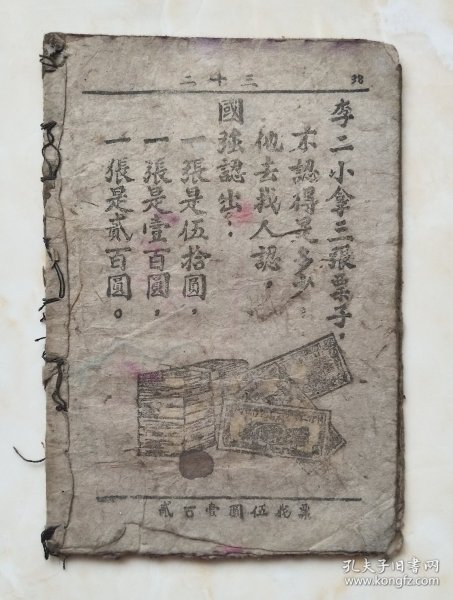 三十二
38
李二小拿三張票子，
不認得是多少；
他去找人認，
國强認出：
一張是伍拾圓，
一張是壹百圓，
一張是貳百圓。
票拾伍圓壹百貳
孔夫子旧书网
www.kongfz.com